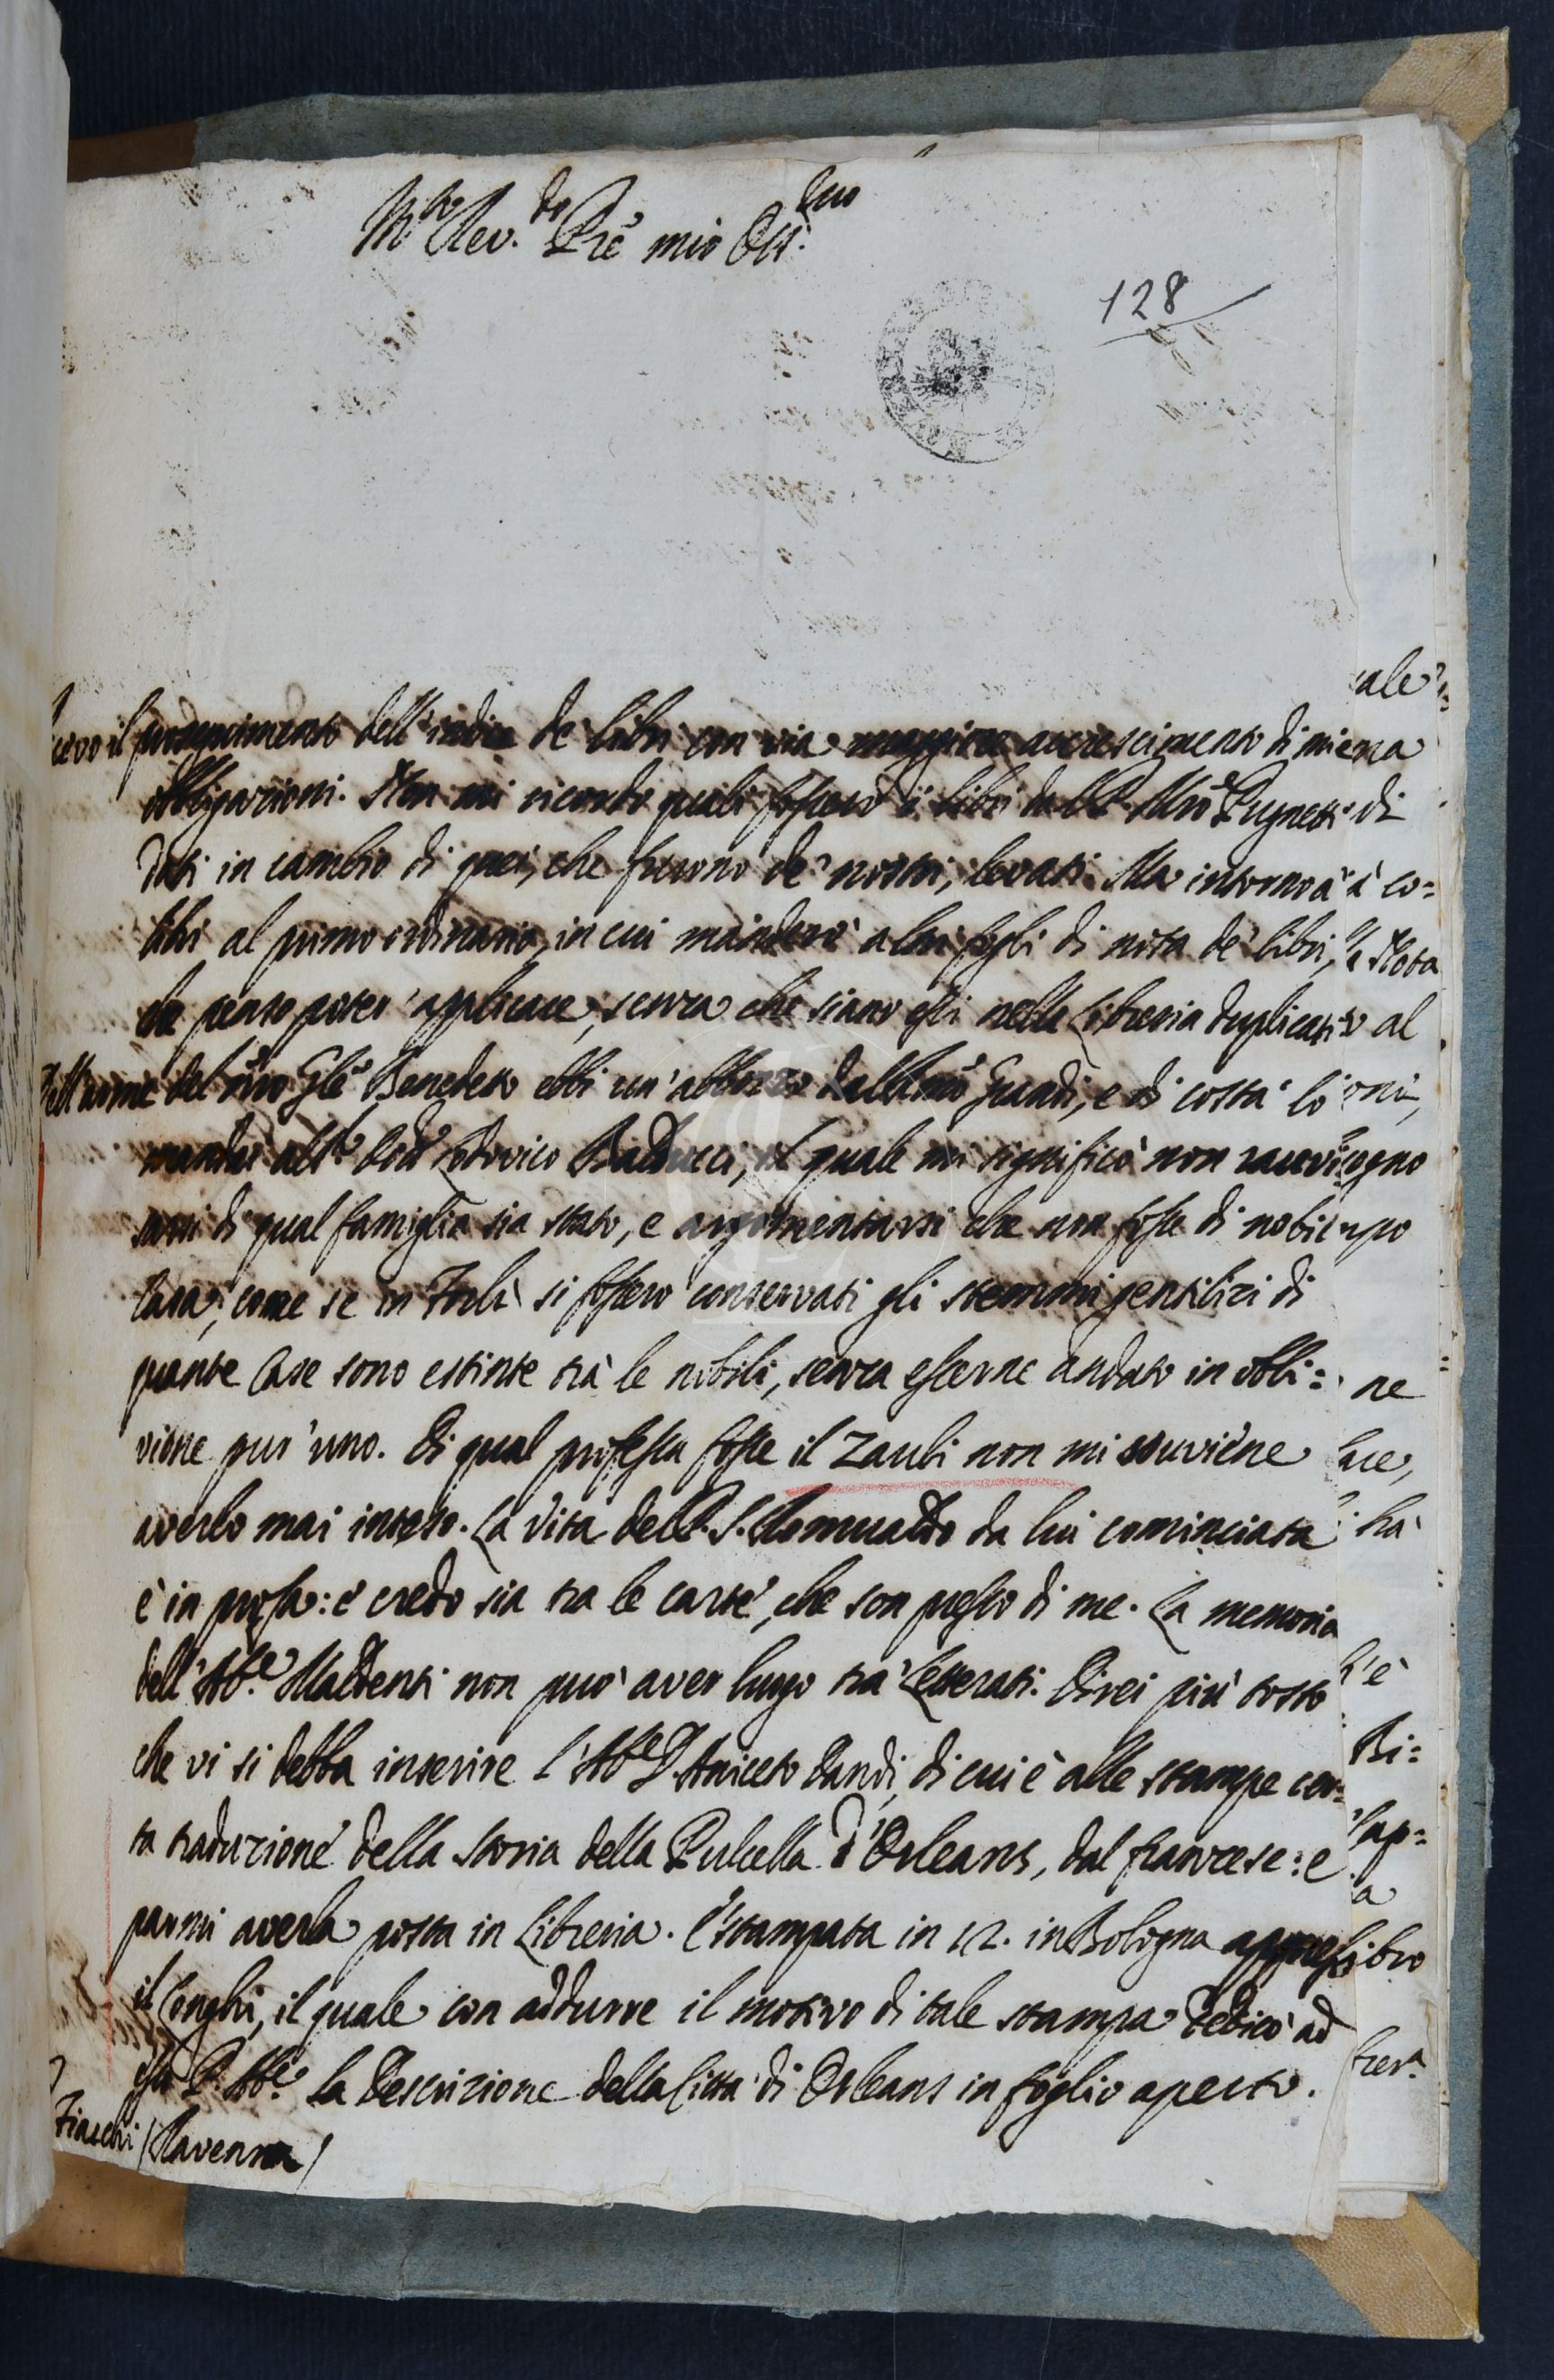 M.to Rev.do Prē mio Oss.mo
128
il proseguimento dell'indice de' libri con via maggiore accrescimento di mie
obbligazioni. Non mi ricordo quali fossero i libri dal P. Mrō Pugnetti
dati in cambio di quei, che furono de' nostri, levati. Ma intorno à
libri al primo ordinario, in cui manderò altri fogli di nota de' libri,
che penso poter' applicare, senza che siano essi nella Libreria duplicati
Dell'arme del nrō Glē Benedetto ebbi un' abbozzo dal Grandi, e di costà lo
mandai all' Lodovico Balducci, il quale mi significò non
di qual famiglia sia stato, e argomentarsi che non fosse di nobil
Casa, come se in Forlì si fossero conservati gli stemmi gentilizi di
quante Case sono estinte trà le nobili, senza esserne andato in obli=
vione pur' uno. Di qual professa fosse il Zaubi non mi souviène
averlo mai inteso. La Vita del P. S. Romualdo da lui cominciata
è in prosa: e credo sia tra le carte, che son presso di me. La memoria
dell'Ab.e Maldenti non può aver luogo trà Letterati. Direi più tosto
che vi si debba inserire l'Ab.e D. Aniceto Dandi, di cui è alle stampe cer=
ta traduzione della storia della Pulcella d'Orleans, dal francese: e
parmi averla posta in Libreria. È stampata in 12. in Bologna appresso
il Longhi, il quale con addurre il motivo di tale stampa dedicò ad
esso P. Ab.e la Descrizione della Città di Orleans in foglio aperto.
Fiacchi (Ravenna)
ale
di
à co=
Nota
al
ogno
upo
ne
lace,
hà
è
Bi=
ap=
a
ibro